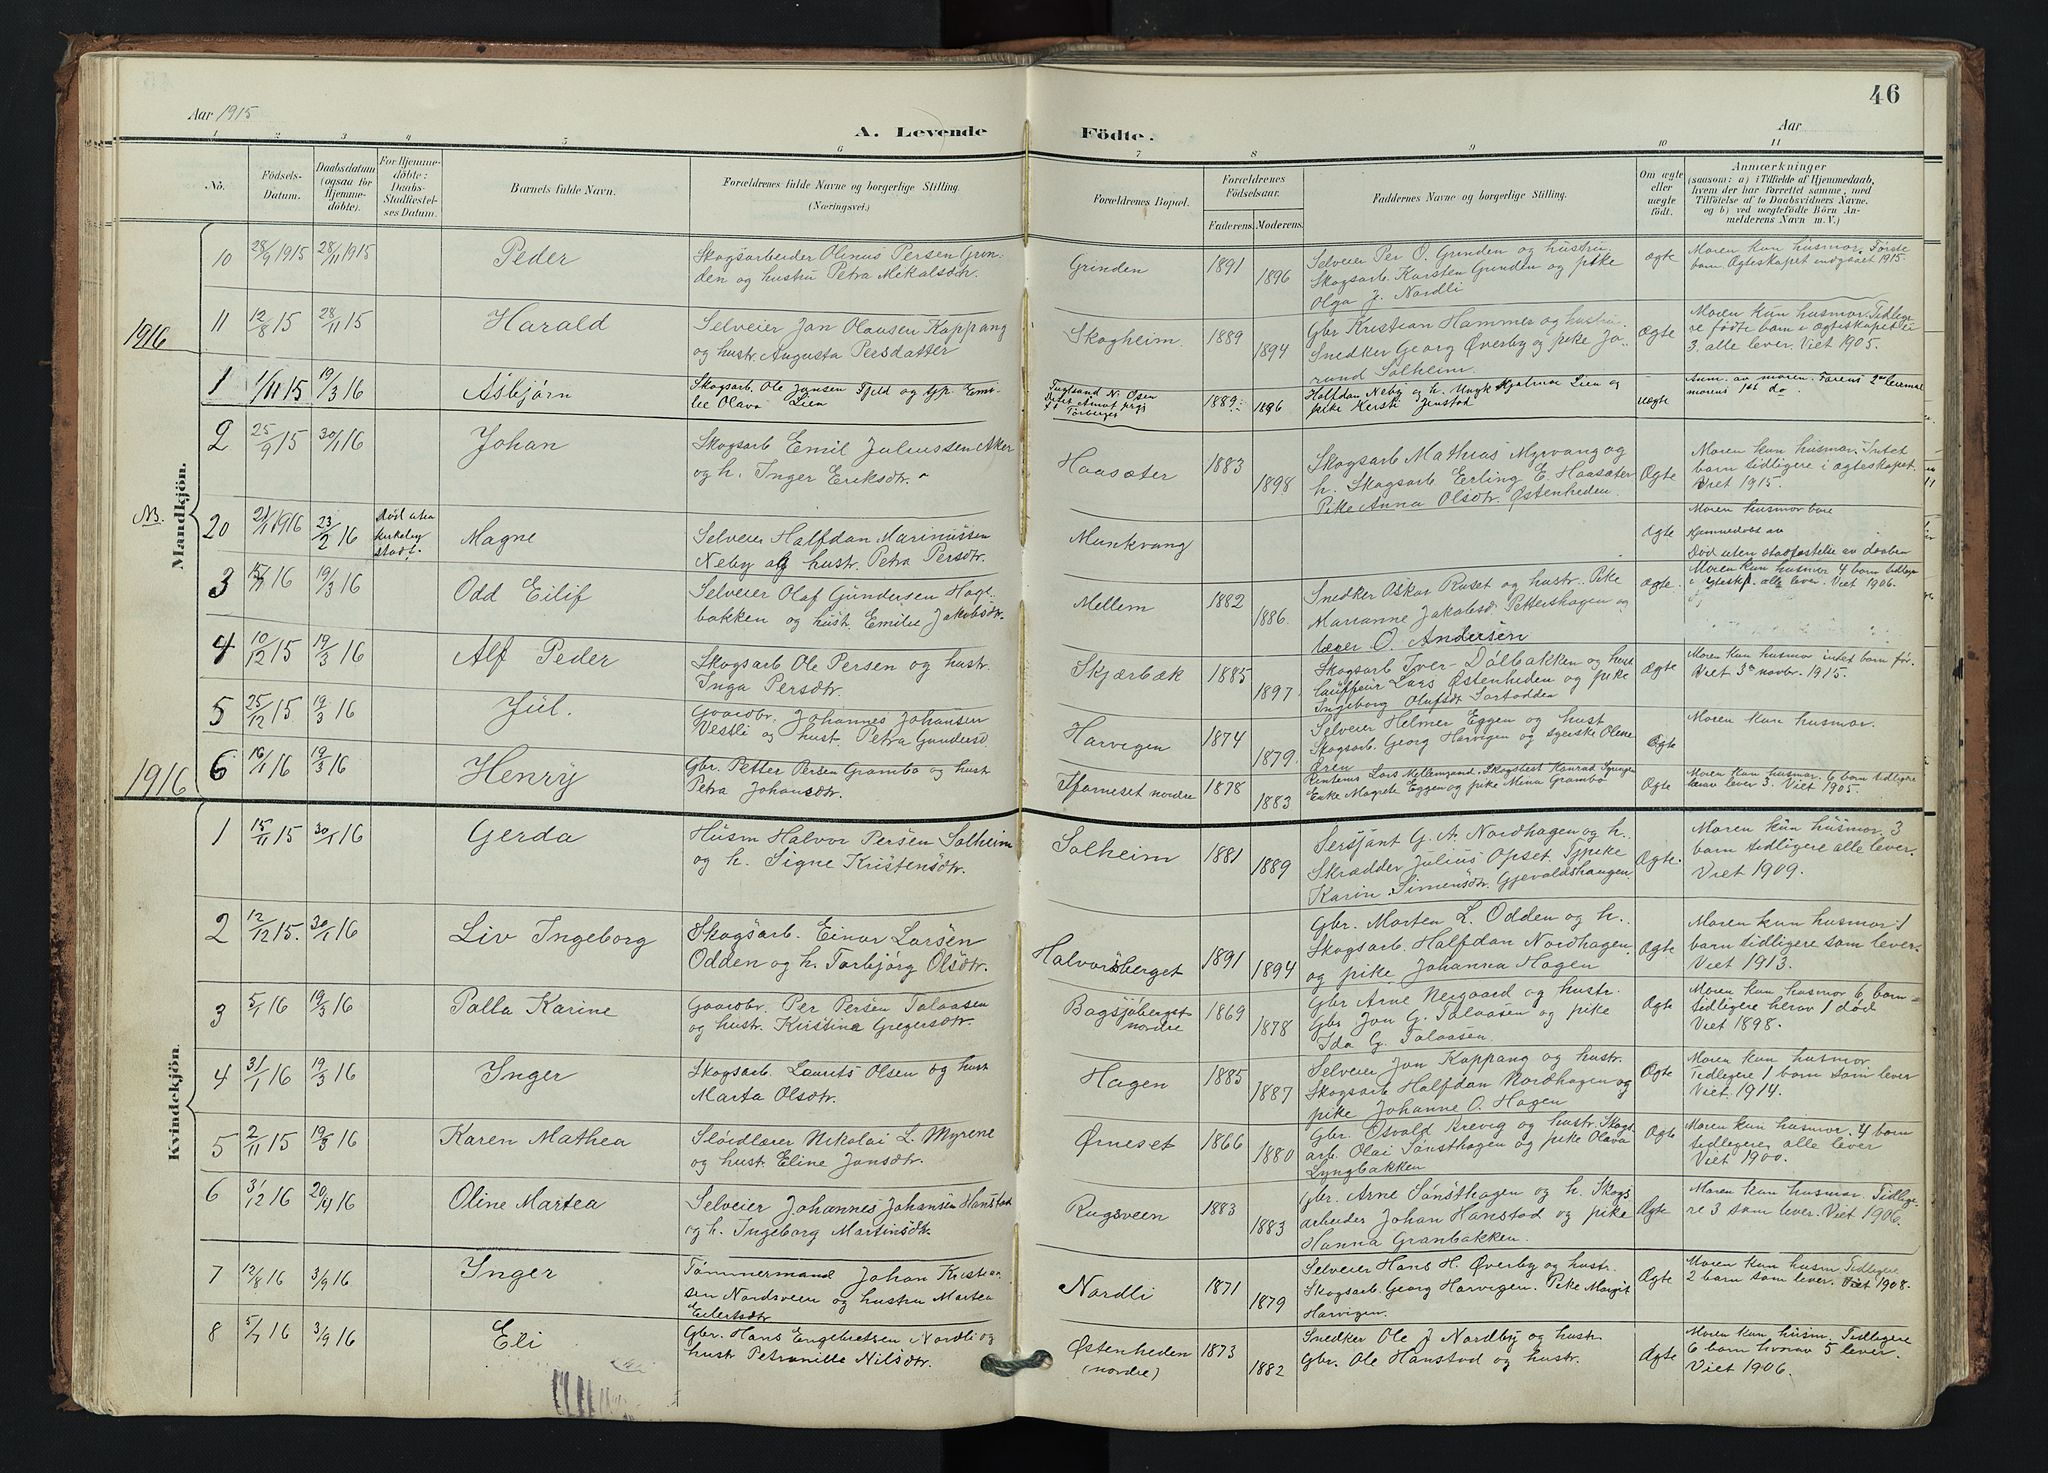 46
Aar 1915
A. Levende Födte.
Aar
1 2 3 4 5 6 7 8 9 10 11
No.
Födsels-Datum.
Daabsdatum (ogsaa for Hjemme-döbte).
For Hjemme-döbte: Daabs-Stadfæstel-ses Datum.
Barnets fulde Navn.
Forældrenes fulde Navne og borgerlige Stilling. (Næringsvei.)
Forældrenes Bopæl.
Forældrenes Födselsaar.
Faderens. Moderens.
Faddernes Navne og borgerlige Stilling.
Om ægte eller uægte födt.
Anmærkninger (saasom: a) i Tilfælde af Hjemmedaab, hvem der har forrettet samme, med Tilföielse af to Daabsvidners Navne. og b) ved uægtefödte Börn An-melderens Navn m. V.)
Mandkjön.
10 28/9 1915 28/11 1915 Peder
Skogsarbeider Olinus Persen Grin-
den og hustru Petra Mikalsdtr.
Grinden 1891 1896
Selveier Per O. Grinden og hustru.
Skogsarb. Karsten Grinden og pike
Olga J. Nordli
ægte
Moren kun husmor. Første
barn. Ægteskapet indgaaet 1915.
1916
11 12/8 15 28/11 15 Harald
Selveier Jon Olausen Koppang
og hustr. Augusta Persdatter
Skogheim. 1889 1894
Gbr Kristian Hammer og hustru.
Snedker Georg Øverby og pike Jo-
rund Solheim.
Ægte
Moren kun husmor. Tidlige
re fødte barn i ægteskapet er
3, alle lever. Viet 1905.
1 1/11 15 19/3 16 Asbjørn
Skogsarb. Ole Jansen Fjeld og tjp. Emi-
lie Olava Lien
1889 1896
Halfdan Neby og h.
pike Kersti
uægte
Anm. av moren. Farens 2det leiermaal
morens 1st do
2 25/9 15 30/1 16 Johan
Skogsarb Emil Juliussen Aker
og h. Inger Eriksdtr.
Haasæter 1883 1898
Skogsarb Mathias Myrvang og
h. Skogsarb. Erling E. Haasæter
Pike Anna Olsdtr. Østenheden.
Ægte
Moren kun husmor. Intet
barn tidligere i ægteskapet.
Viet 1915.
NB.
20 21/1 1916 23/2 16 Magne
Selveier Halfdan Marinussen
Neby og hustr. Petra Persdtr.
Munkvang
Ægte
Moren husmor bare
Hjemmedøbt av
Død uten stadfæstelse av daaben
3 15/1 16 19/3 16 Odd Eilif
Selveier Olaf Gundersen Hage-
bakken og hustr. Emilie Jakobsdtr.
Mellem 1882 1886.
Snedker Oskar Ruset og hustr. Pike
Marianne Jakobsd. Pettershagen og
lærer O. Andersen
Ægte
Moren kun husmor 4 barn tidlige
i ægtesk. alle lever. Viet 1906.
4 10/12 15 19/3 16 Alf Peder
Skogsarb Ole Persen og hustr.
Inga Persdtr.
Skjærbæk 1885 1897
Skogsarb Iver Dølbakken og hust
Lauffeur Lars Østenheden og pike
Ingeborg Olufsdt Sortodden
Ægte
Moren kun husmor intet barn før.
Viet 3die novbr. 1915.
5 25/12 15 19/3 16 Jul.
Gaardbr. Johannes Johansen
Vessli og hust. Petra Gundersd.
Harvigen 1874 1879
Selveier Helmer Eggen og hust
Skogsarb. Georg Harvigen og syerske Olene
Øren
Ægte
Moren kun husmor.
1916
6 16/1 16 19/3 16 Henry
Gbr. Petter Persen Grambo og hust
Petra Johansdtr.
nordre 1878 1883
Rentenis Lars Mellemsand, Konrad
Enke Magrete Eggen og pike Mina Grambo
Ægte
Moren kun husmor. 6 barn tidligere
herav lever 3. Viet 1905.
Kvindekjön.
1 15/11 15 30/1 16 Gerda
Husm Halvor Persen Solheim
og h. Signe Kristensdtr.
Solheim 1881 1889
Sersjant G. A. Nordhagen og h.
Skrædder Julius Opset, Tjpike
Karin Simensdtr. Gjevaldshaugen
Ægte.
Moren kun husmor. 3
barn tidligere alle lever.
Viet 1909.
2 12/12 15. 30/1 16 Liv Ingeborg
Skogsarb. Einar Larsen
Odden og h. Torbjørg Olsdtr.
Halvorsberget 1891 1894
Gbr. Morten L. Odden og h.
Skogsarb. Halfdan Nordhagen
og pike Johanna Hagen
Ægte
Moren kun husmor. 1
barn tidligere som lever.
Viet 1913.
3 5/1 16 19/3 16 Palla Karine
Gaardbr. Per Persen Talaasen
og hustr. Kristine Gregersdtr.
Bagsjøberget
nordre 1869 1878
Gbr Arne Neigaard og hustr.
Gbr Jon G. Talaasen og pike
Ida G. Talaasen.
Ægte
Moren kun husmor 6 barn
tidligere herav 1 død
Viet 1898.
4 31/1 16 19/3 16 Inger
Skogsarb. Laurits Olsen og hust
Marta Olsdtr.
Hagen 1885 1887
Selveier Jon Koppang og hustr.
Skogsarb Halfdan Nordhagen og
pike Johanne O. Hagen
Ægte
Moren kun husmor.
Tidligere 1 barn som lever
Viet 1914.
5 2/11 15 19/3 16 Karen Mathea
Sløidlærer Nikolai L. Myrene
og hust. Eline Jonsdtr.
Ørneset 1866 1880
Gbr. Osvald Krevig og hustr. Skogs
arb. Olai Sønsthagen og pike Olava
Lyngbakken
Ægte
Moren kun husmor. 4 barn
tidligere, alle lever
Viet 1900.
6 31/12 16 20/4 16 Oline Martea
Selveier Johannes Johansen Hanstad
og h. Ingeborg Martinsdtr.
Rugsveen 1883 1883
Gbr. Arne Sønsthagen og h. Skogs
arbeider Johan Hanstad og pike
Hanna Granbakken.
Ægte
Moren kun husmor. Tidlige
re 3 som lever. Viet 1906.
7 12/8 16 3/9 16 Inger
Tømmermand Johan Kristian-
sen Nordsveen og hustru Martea
Eilertsdtr
Nordli 1871 1879
Selveier Hans H. Øverby og hustr.
Skogsarb. Georg Harvigen. Pike Margit
Harvigen.
Ægte
Moren kun husm Tidligere
2 barn som lever. Viet 1908.
8 5/7 16 3/9 16 Eli
Gbr. Hans Engebretsen Nordli og
hustr Petronille Nilsdtr.
Østenheden
(nordre) 1873 1882
Snedker Ole J Nordby og hustr.
Gbr. Ole Hanstad og hustr.
Ægte
Moren kun husm. Tidligere
6 barn hvorav 5 lever.
Viet 1906.